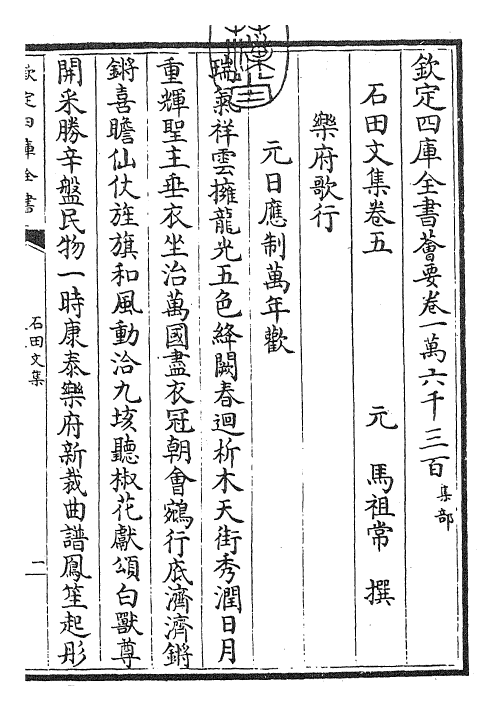 欽定四庫全書薈要卷一萬六千三百 集部
石田文集卷五
元 馬祖常 撰
樂府歌行
元日應制萬年歡
瑞氣祥雲擁龍光五色絳闕春迴析木天街秀潤日月
重輝聖主垂衣坐治萬國盡衣冠朝會鵷行底濟濟鏘
鏘喜瞻仙仗旌旗和風動洽九垓聽椒花獻頌白獸尊
開采勝辛盤民物一時康泰樂府新裁曲譜鳳笙起彤
欽定四庫全書
石田文集
二